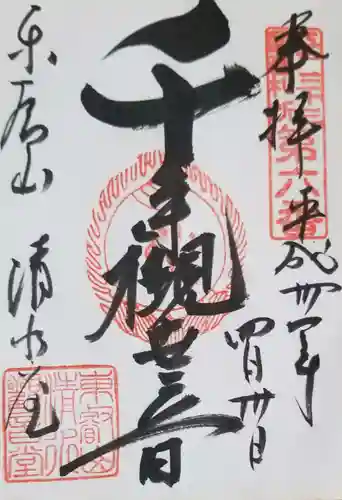 奉拝 平成卅一年
四月卅日
第六番
千手観世音
東叡山 清水堂
東叡山
清水
観音堂